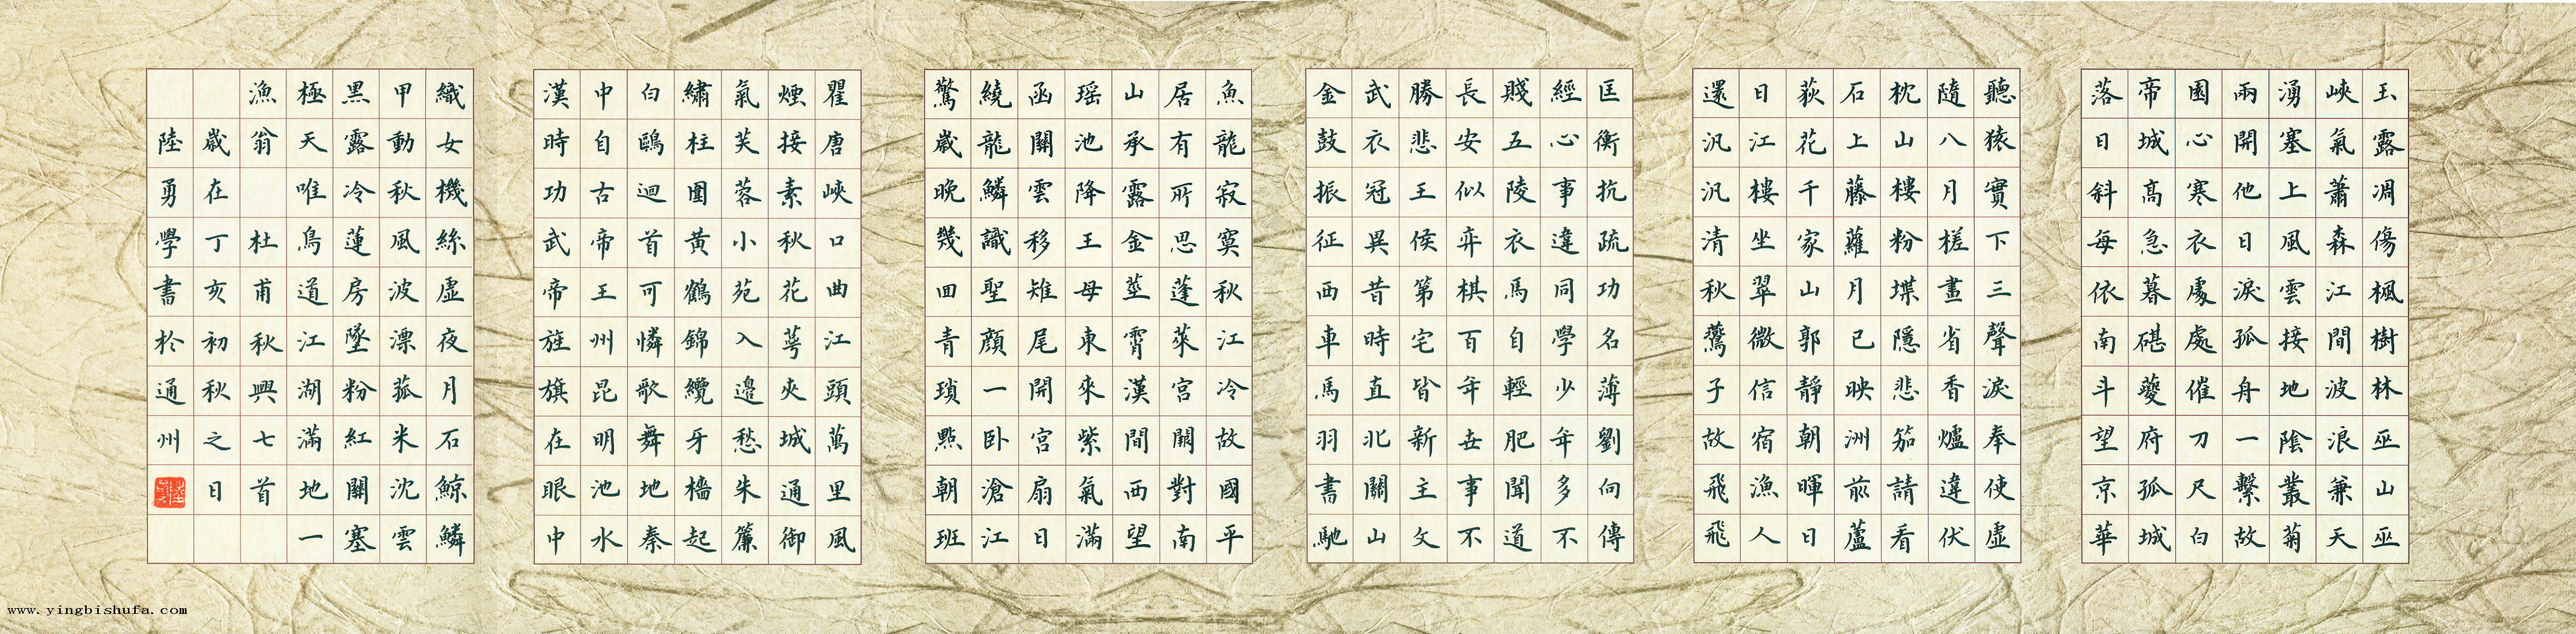 玉露凋傷楓樹林巫山巫
峽氣蕭森江間波浪兼天
湧塞上風雲接地陰叢菊
兩開他日淚孤舟一繫故
園心寒衣處處催刀尺白
帝城高急暮碪夔府孤城
落日斜每依南斗望京華
聽猿實下三聲淚奉使虛
隨八月槎畫省香爐違伏
枕山樓粉堞隱悲笳請看
石上藤蘿月已映洲前蘆
荻花千家山郭靜朝暉日
日江樓坐翠微信宿漁人
還汎汎清秋鷰子故飛飛
匡衡抗疏功名薄劉向傳
經心事違同學少年多不
賤五陵衣馬自輕肥聞道
長安似弈棋百年世事不
勝悲王侯第宅皆新主文
武衣冠異昔時直北關山
金鼓振征西車馬羽書馳
魚龍寂寞秋江冷故國平
居有所思蓬萊宮闕對南
山承露金莖霄漢間西望
瑤池降王母東來紫氣滿
函關雲移雉尾開宮扇日
繞龍鱗識聖顏一臥滄江
驚歲晚幾回青瑣點朝班
瞿唐峽口曲江頭萬里風
煙接素秋花萼夾城通御
氣芙蓉小苑入邊愁朱簾
繡柱圍黃鶴錦纜牙檣起
白鷗迴首可憐歌舞地秦
中自古帝王州昆明池水
漢時功武帝旌旗在眼中
織女機絲虛夜月石鯨鱗
甲動秋風波漂菰米沈雲
黑露冷蓮房墜粉紅關塞
極天唯鳥道江湖滿地一
漁翁 杜甫秋興七首
歲在丁亥初秋之日
陸勇學書於通州
www.yingbishufa.com